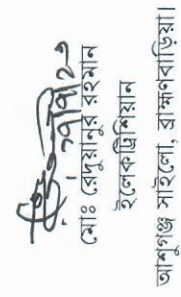 মোঃ রেদুয়ানুর রহমান
ইলেকট্রিশিয়ান
আশুগঞ্জ সাইলো, ব্রাহ্মণবাড়িয়া।